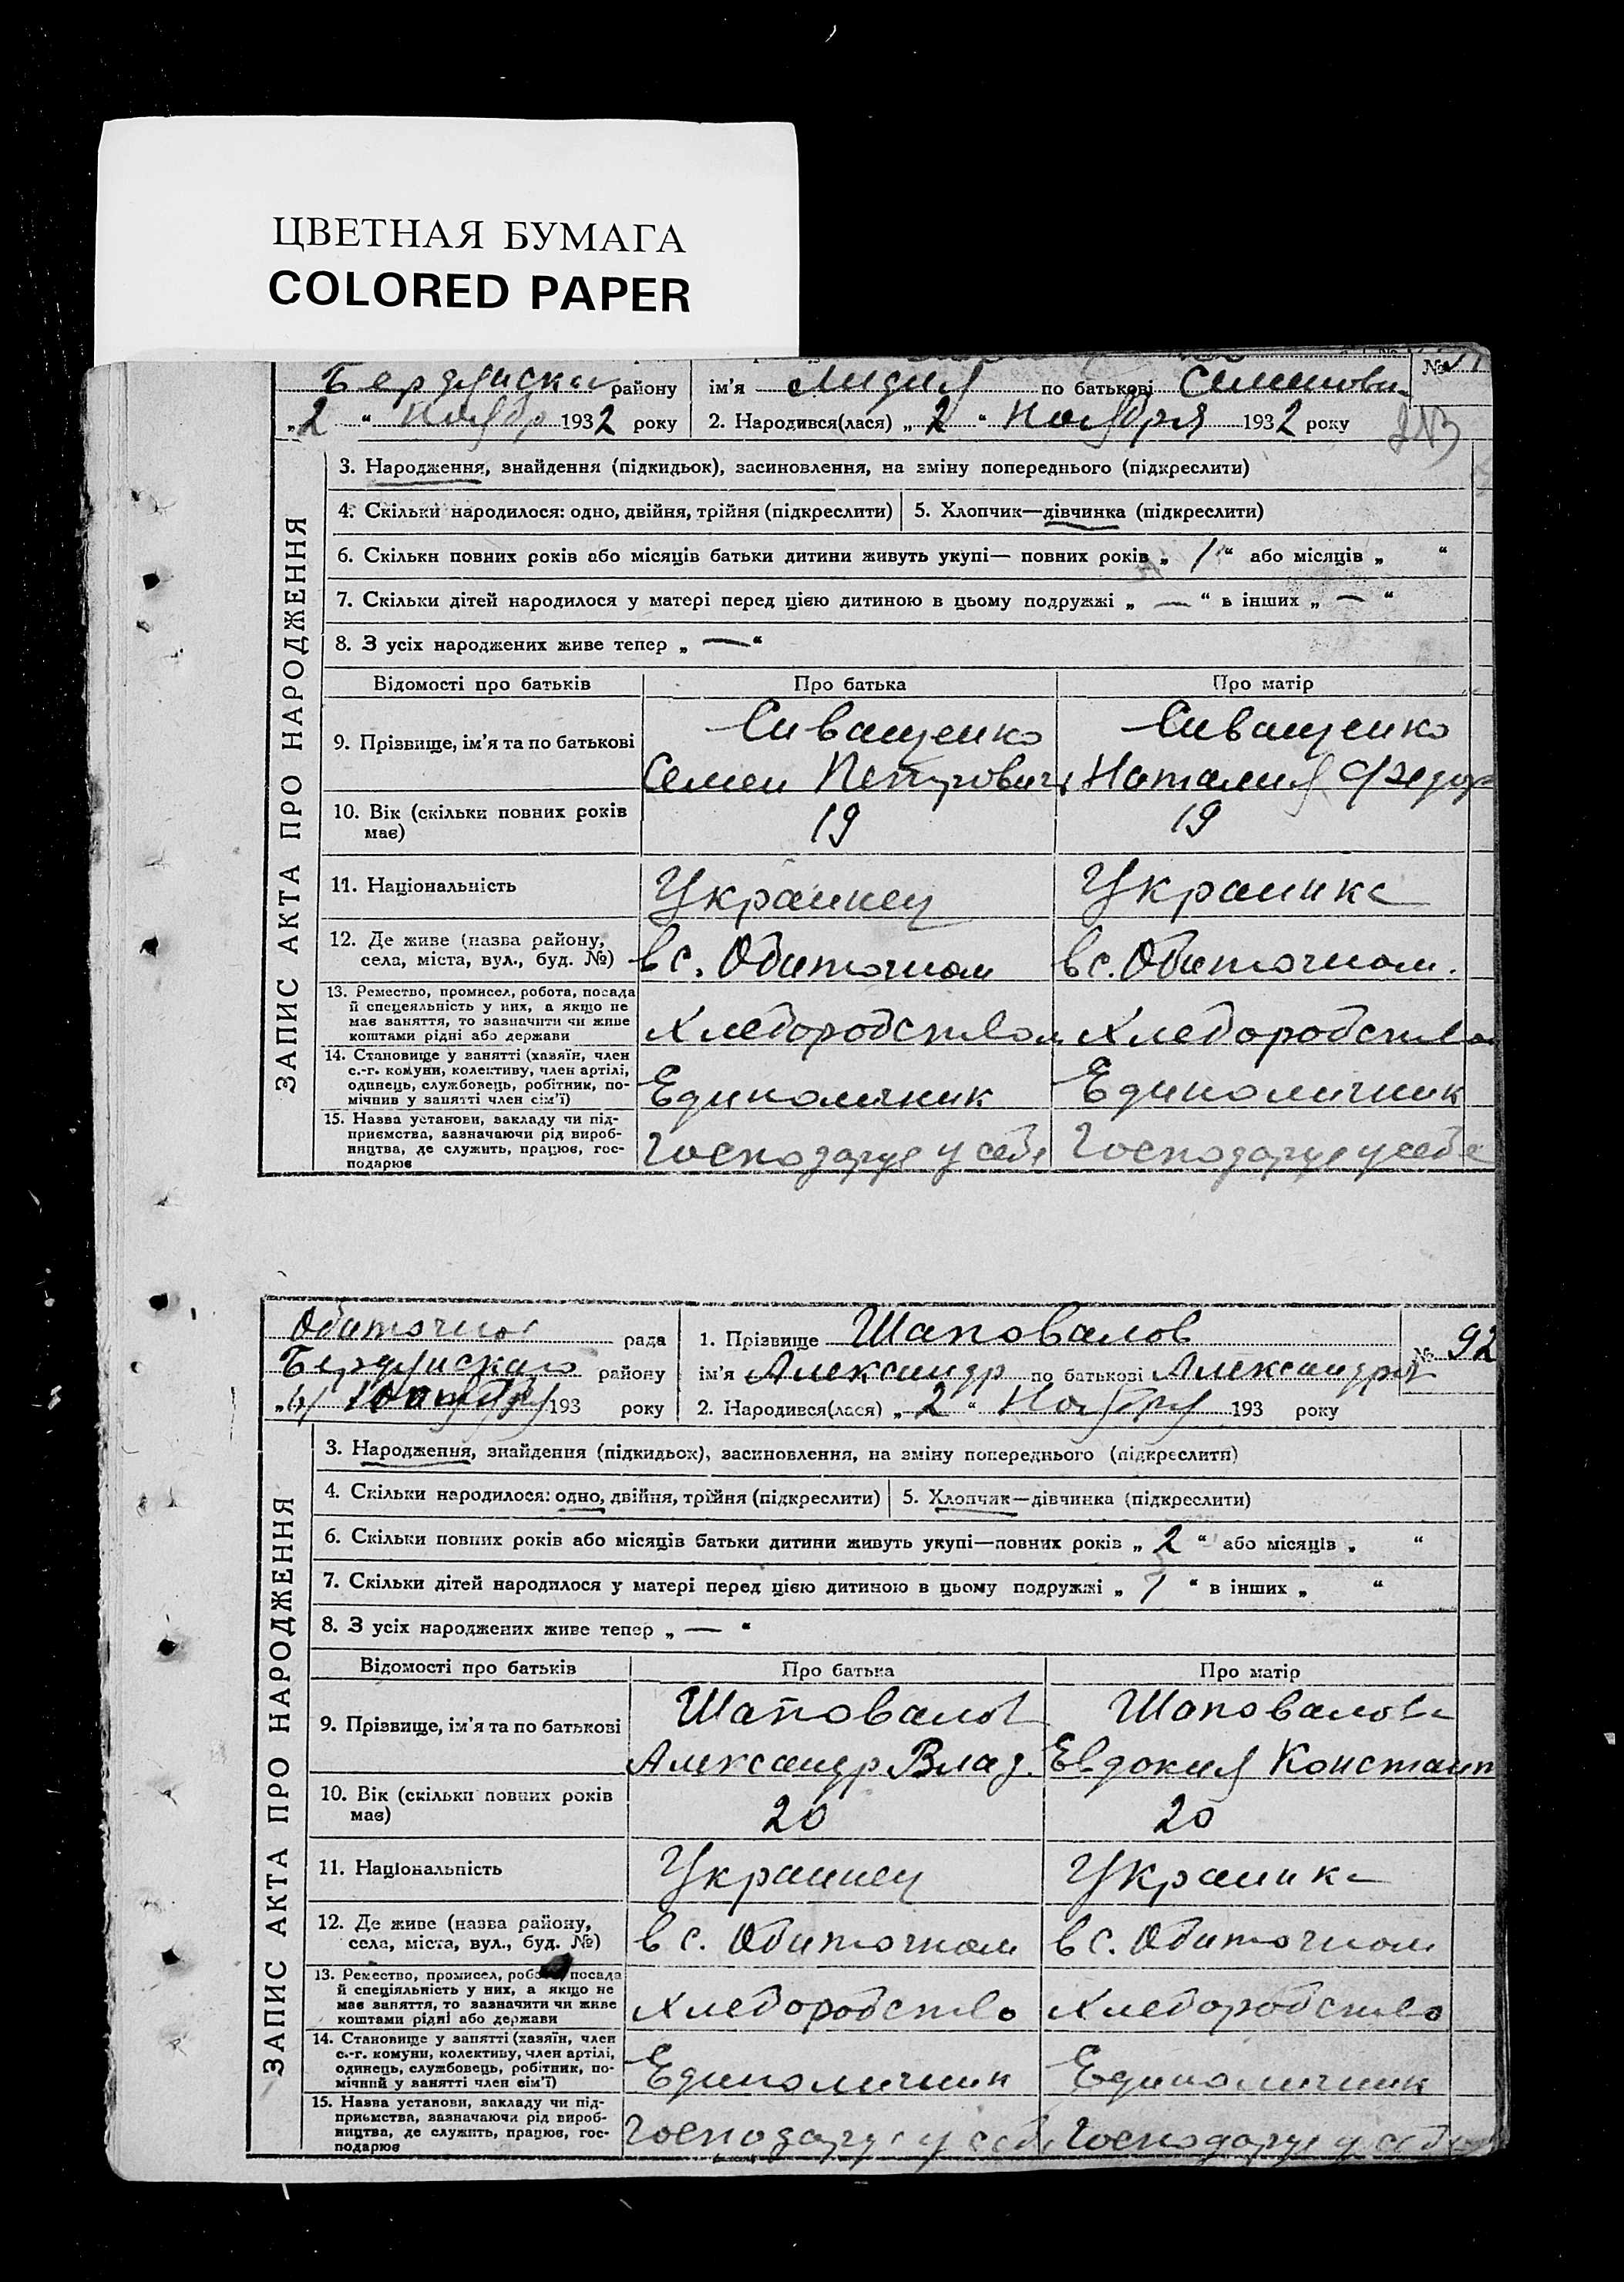 ЦВЕТНАЯ БУМАГА
COLORED PAPER
району ім'я Лидия по батькові Семеновн
№
„2“ Ноябр 1932 року 2. Народився(лася) „2“ Ноября 1932 року
ЗАПИС АКТА ПРО НАРОДЖЕННЯ
3. Народження, знайдення (підкидьок), засиновлення, на зміну попереднього (підкреслити)
4. Скільки народилося: одно, двійня, трійня (підкреслити) 5. Хлопчик—дівчинка (підкреслити)
6. Скільки повних років або місяців батьки дитини живуть укупі— повних років „1“ або місяців „ “
7. Скільки дітей народилося у матері перед цією дитиною в цьому подружжі „—“ в інших „—“
8. З усіх народжених живе тепер „—“
Відомості про батьків Про батька Про матір
9. Прізвище, ім'я та по батькові Сиващенко Сиващенко
Семен Петрович Наталия Федор
10. Вік (скільки повних років має) 19 19
11. Національність Украинец Украинка
12. Де живе (назва району, села, міста, вул., буд. №) в с. Обиточном в с. Обиточном.
13. Ремество, промисел, робота, посада
й спецеяльність у них, а якщо не
має заняття, то зазначити чи живе
коштами рідні або держави Хлебородство Хлебородство
14. Становище у занятті (хазяїн, член
с.-г. комуни, колективу, член артілі,
одинець, службовець, робітник, по-
мічнив у занятті член сім'ї) Единоличник Единоличник
15. Назва установи, закладу чи під-
приємства, зазначаючи рід вироб-
ництва, де служить, працює, гос-
подарює Господарує у себе Господарує у себе
Обиточное рада 1. Прізвище Шаповалов № 92
Бердянскаго району ім'я Александр по батькові Александров
193 року 2. Народився(лася) „2“ Ноября 193 року
ЗАПИС АКТА ПРО НАРОДЖЕННЯ
3. Народження, знайдення (підкидьок), засиновлення, на зміну попереднього (підкреслити)
4. Скільки народилося: одно, двійня, трійня (підкреслити) 5. Хлопчик—дівчинка (підкреслити)
6. Скільки повних років або місяців батьки дитини живуть укупі—повних років „2“ або місяців „ “
7. Скільки дітей народилося у матері перед цією дитиною в цьому подружжі „1“ в інших „ “
8. З усіх народжених живе тепер „—“
Відомості про батьків Про батька Про матір
9. Прізвище, ім'я та по батькові Шаповалов Шаповалова
Александр Влад. Евдокия Констант
10. Вік (скільки повних років має) 20 20
11. Національність Украинец Украинка
12. Де живе (назва району, села, міста, вул., буд. №) в с. Обиточном в с. Обиточном
13. Ремество, промисел, робота, посада
й спеціяльність у них, а якщо не
має заняття, то зазначити чи живе
коштами рідні або держави Хлебородство Хлебородство
14. Становище у занятті (хазяїн, член
с.-г. комуни, колективу, член артілі,
одинець, службовець, робітник, по-
мічний у занятті член сім'ї) Единоличник Единоличник
15. Назва установи, закладу чи під-
приємства, зазначаючи рід вироб-
ництва, де служить, працює, гос-
подарює Господарує у себе Господарує у себе